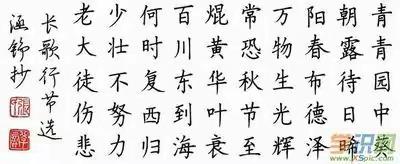 青青园中葵
朝露待日晞
阳春布德泽
万物生光辉
常恐秋节至
焜黄华叶衰
百川东到海
何时复西归
少壮不努力
老大徒伤悲
长歌行节选
涵舒抄